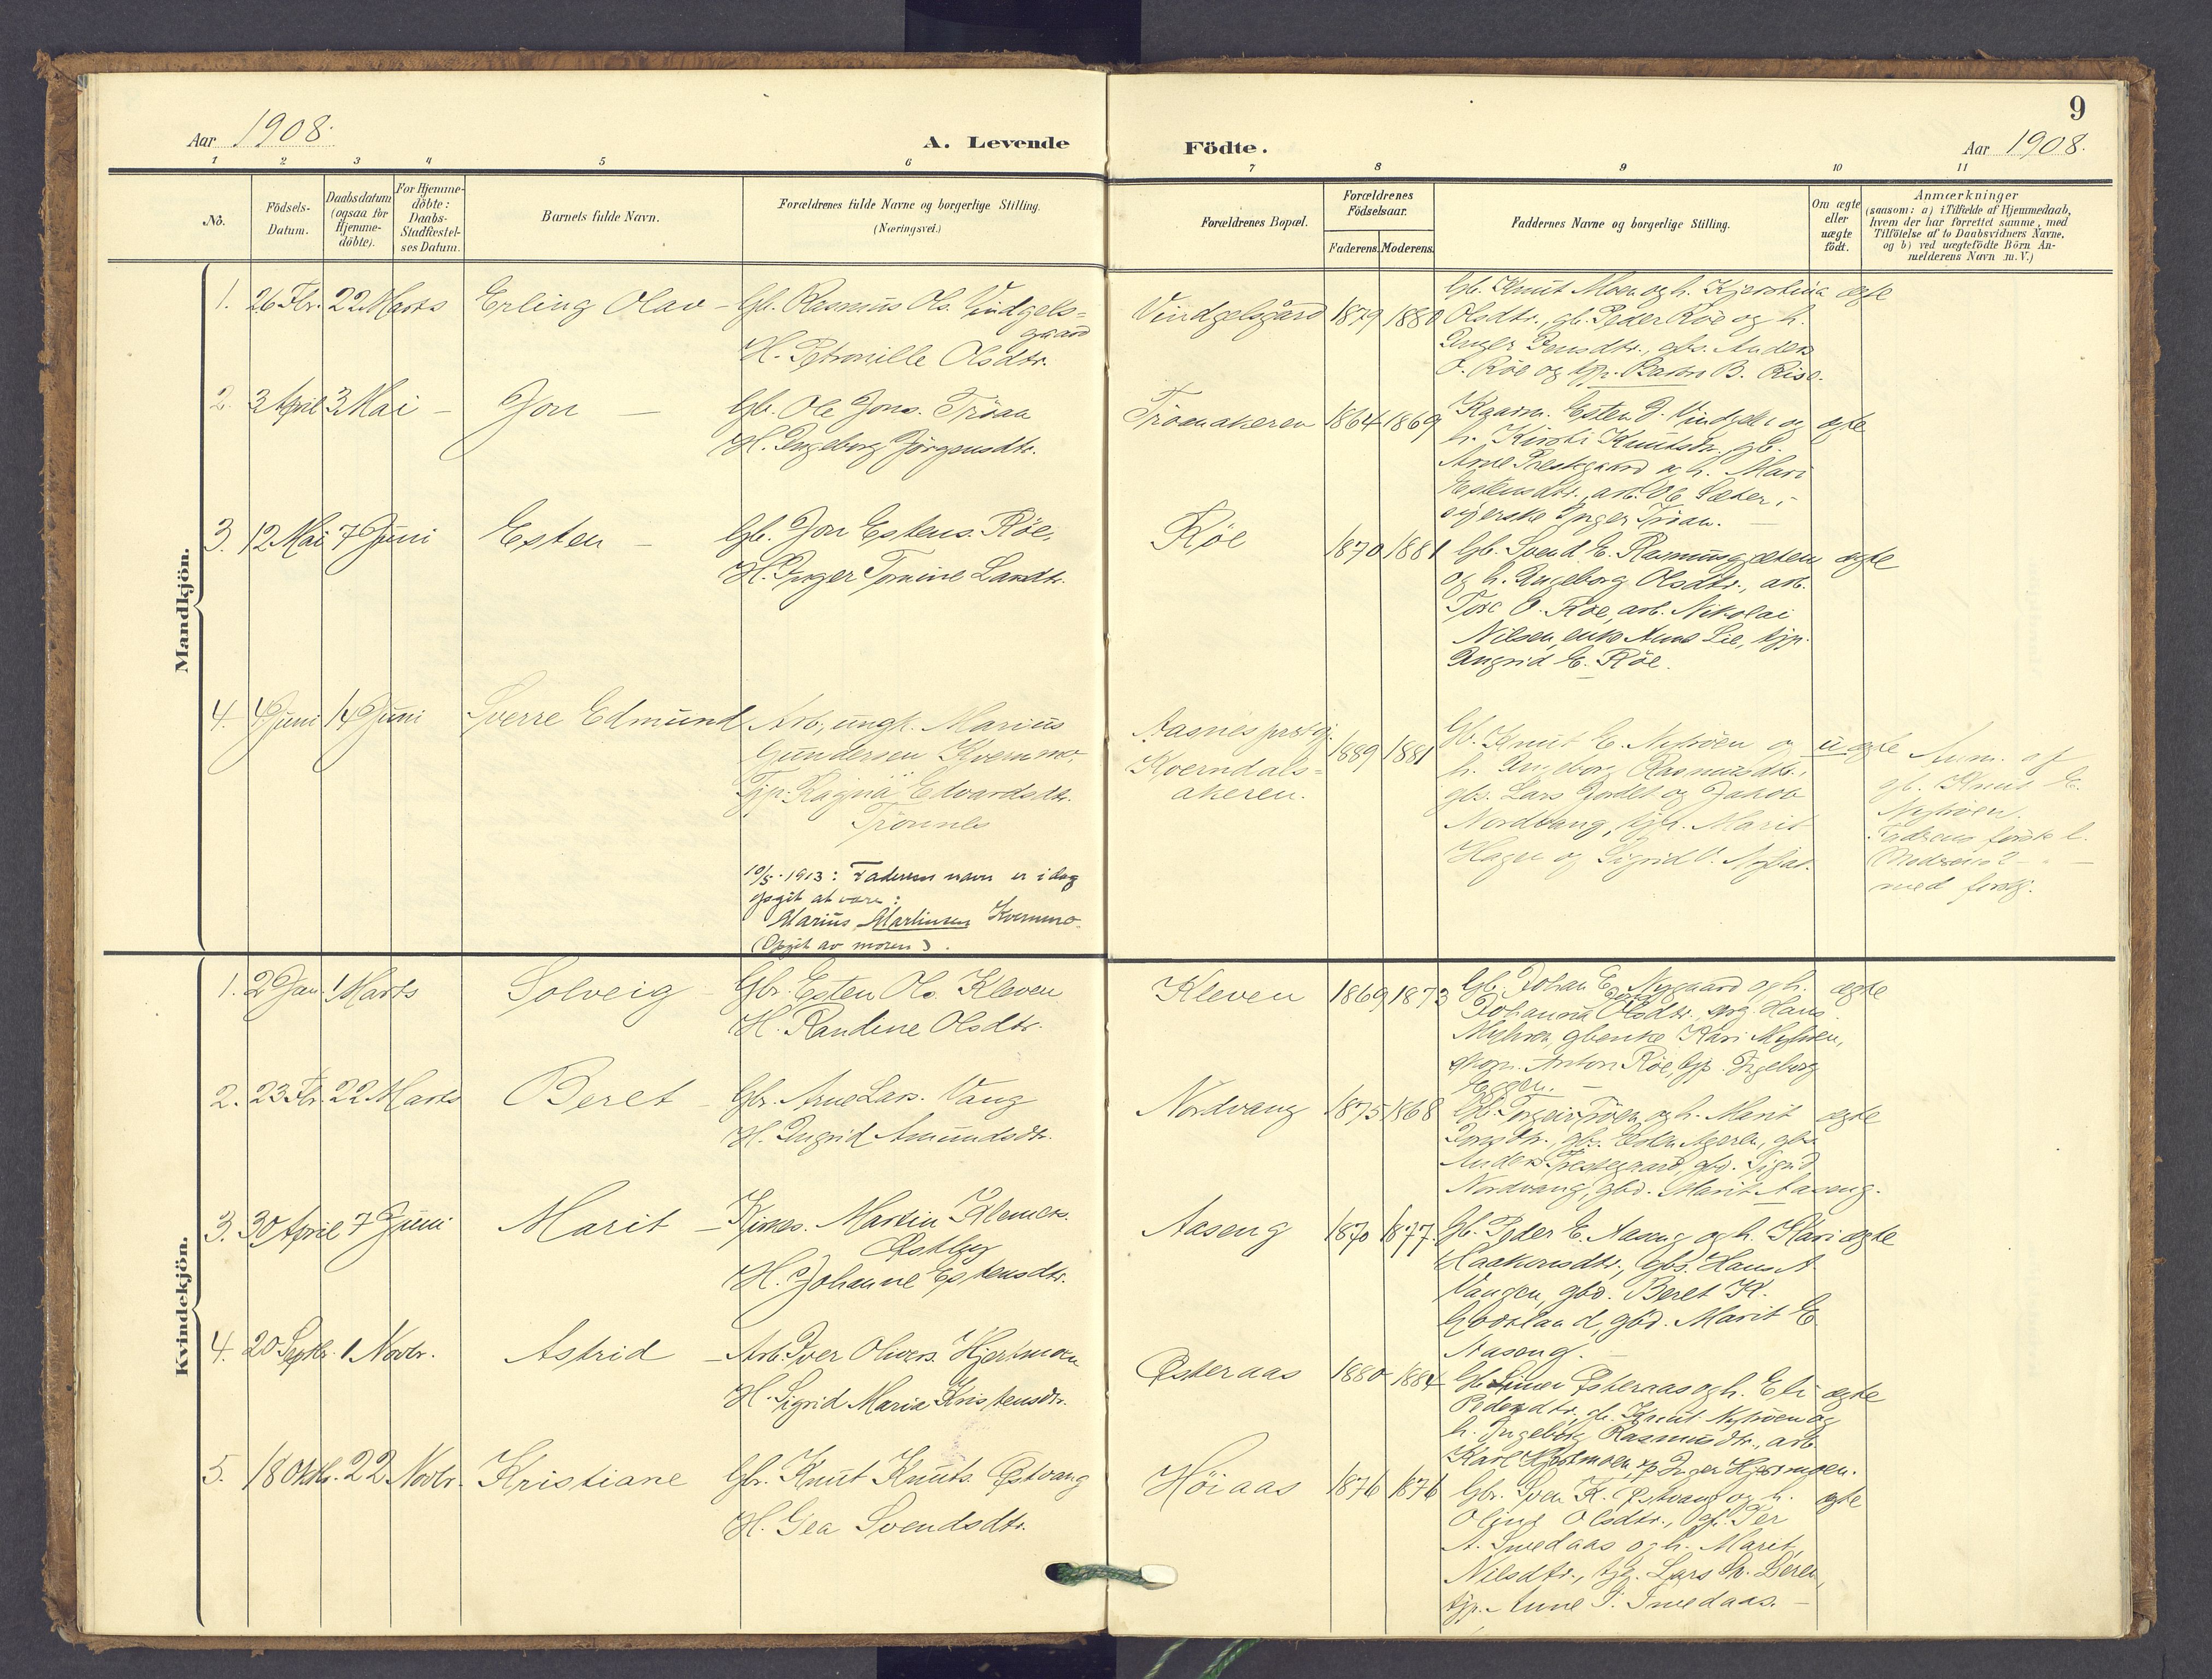 9
Aar 1908.
A. Levende Födte.
Aar 1908.
1 2 3 4 5 6 7 8 9 10 11
No.
Födsels-
Datum.
Daabsdatum
(ogsaa for
Hjemme-
döbte).
For Hjemme-
döbte:
Daabs-
Stadfæstel-
ses Datum.
Barnets fulde Navn.
Forældrenes fulde Navne og borgerlige Stilling.
(Næringsvei.)
Forældrenes Bopæl.
Forældrenes
Födselsaar.
Faderens. Moderens.
Faddernes Navne og borgerlige Stilling.
Om ægte
eller
uægte
födt.
Anmærkninger
(saasom: a) i Tilfælde af Hjemmedaab,
hvem der har forrettet samme, med
Tilföielse af to Daabsvidners Navne,
og b) ved uægtefödte Börn An-
melderens Navn m. V.)
Mandkjön.
1. 26 Fbr. 22 Marts Erling Olav – Gb. Rasmus Ols. Vindgels=
gaard
H. Petronille Olsdtr.
Vindgelsgård 1879 1880
Gb. Knut Moen og h. Kjerstina
Olsdtr., gb. Peder Röe og h.
Inger Jensdtr., gbs. Anders
J. Röe og tjp. Barbro B. Rise.
ægte
2. 3 April 3 Mai – Jon – Gb. Ole Jons. Tröan
H. Ingeborg Jörgensdtr.
Tröanakeren 1864 1869
Kaarm. Esten J. Vindgels og
h. Kirsti Knutsdr., gb.
Arne Prestegaard og h. Mari
Estensdtr., arb. Ole Sæter,
syerske Inger Tröan. –
ægte
3. 12 Mai 7 Juni Esten – Gb. Jon Estens. Röe.
H. Inger Tomine Larsdtr.
Röe 1870 1881
Gb. Svend E. Rasmusgjeten
og h. Ingeborg Olsdtr., arb.
Tore O. Röe, arb. Nikolai
Nilsen, enke Anne Lie, tjp.
Ingrid E. Röe.
ægte
4. 4 Juni 14 Juni Sverre Edmund Arb., ungk. Marius
Gundersen Kvernmo.
Tjp. Ragna Edvardsdtr.
Trönnes
10/5-1913: Faderens navn er idag
opgit at være:
Marius Martinsen Kvernmo.
(Opgit av moren).
Aasnes prstgj.
Kverndals=
akeren.
1889 1881
Gb. Knut E. Nytröen og
h. Ingeborg Rasmusdtr.,
gbs. Lars Jordet og Jakob
Nordvang, tjp. Marit
Hagen og Sigrid
uægte
Anm. af
gb. Knut E.
Nytröen.
Faderens förste l.
Moderens 2 – " –
med forskj.
Kvindekjön.
1. 2 Jan. 1 Marts Solveig – Gbr. Esten Ols. Kleven
H. Randine Olsdtr.
Kleven 1869 1873
Gb. Johan E. Nygaard og h.
Johanna Olsdtr., Hans
Myhren, gbenke Kari Myhren,
Anton Röe, tjp. Ingeborg
Eggen. –
ægte
2. 23 Fbr. 22 Marts Beret – Gbr. Arne Lars. Vang
H. Ingrid Amundsdtr.
Nordvang 1875 1868
Gb. Torgeir Tröen og h. Marit
Jonsdtr., gbs. Esten gbs.
Anders Prestegaard, gbd. Sigrid
Nordvang, gbd. Marit Aaseng.
ægte
3. 30 April 7 Juni Marit – Kirkes. Martin Klemets.
Østby
H. Johanne Estensdtr.
Aaseng 1870 1877.
Gb. Peder E. Aaseng og h. Kari
Haakonsdtr., gbs. Hans A.
Vangen, gbd. Beret K.
gbd. Marit E.
Aaseng. –
ægte
4. 20 Septbr. 1 Novbr. Astrid – Arb. Iver Olivers. Hjertmoen
H. Sigrid Maria Kristensdtr.
Østeraas 1880 1884
Gb. Simen Østeraas og h. Eli
Pedersdtr., gb. Knut Nytröen og
h. Ingeborg Rasmusdtr., arb.
Karl Hjertmoen, tjp Inger Hjertmoen.
ægte
5. 18 Oktbr. 22 Novbr. Kristiane Gbr. Knut Knuts. Østvang
H. Gea Svendsdtr.
Höiaas 1876 1876
Gbr. Sven K. Østvang og h.
Oline Olsdtr., gb. Per
A. Smedaas og h. Marit
Nilsdtr., tjg. Lars
tjp. Anne P. Smedaas. –
ægte